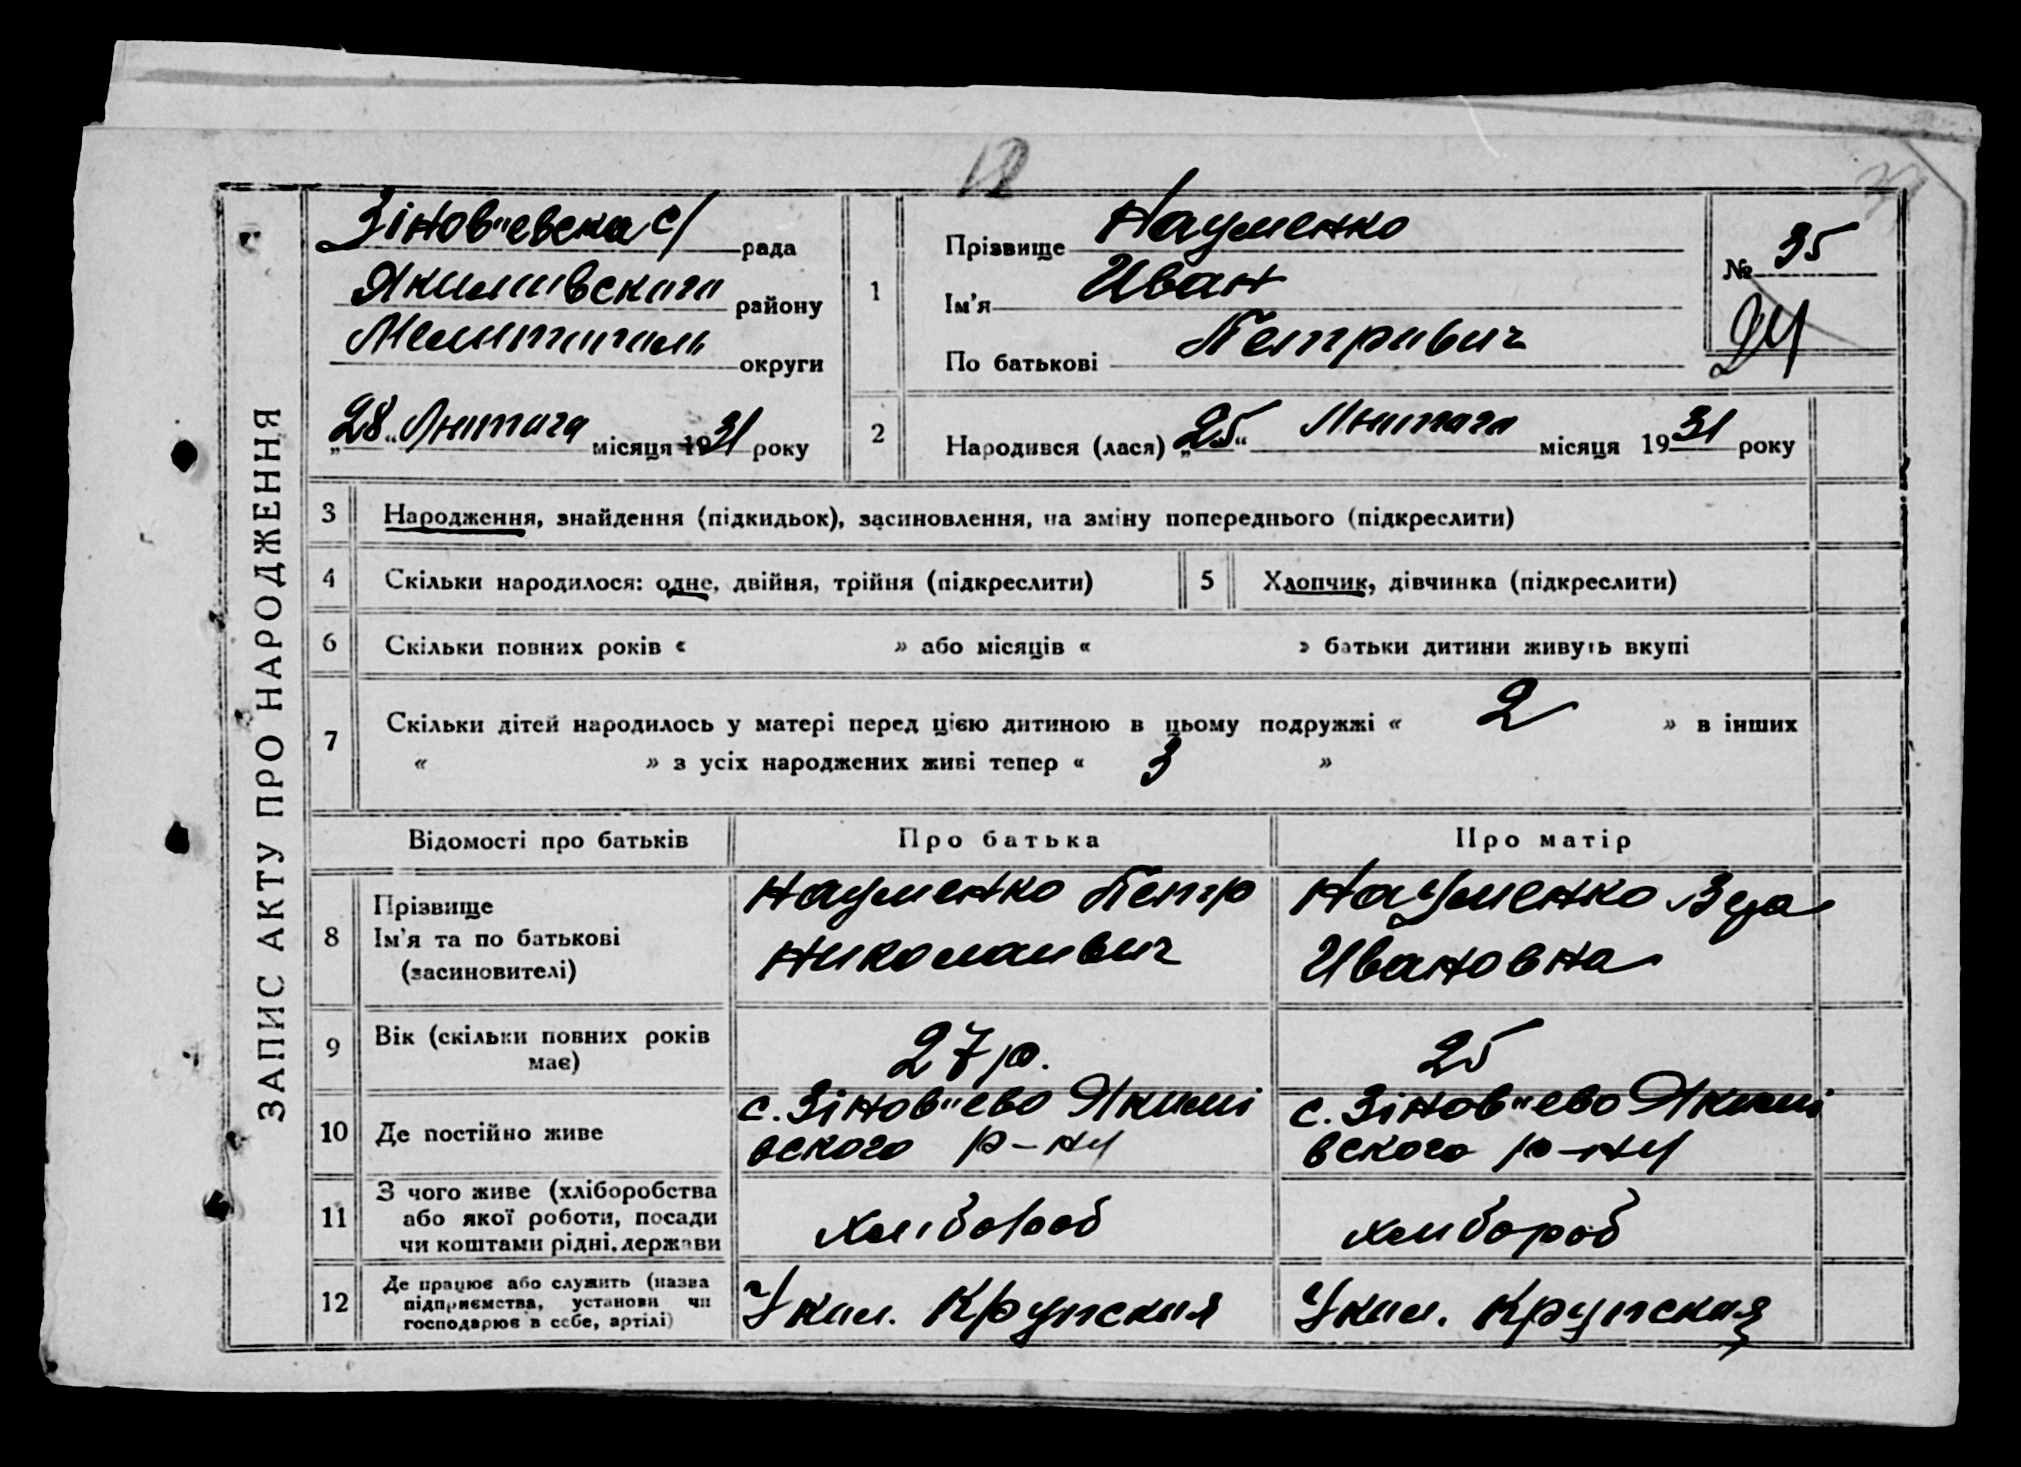 12
ЗАПИС АКТУ ПРО НАРОДЖЕННЯ
Зіновʼʼевска с/ рада
Якимивского району
Мелитополь округи
„28“ Лютого місяця 1931 року
1
Прізвище Науменко
Ім'я Иван
По батькові Петрович
№ 35
24
2
Народився (лася) „25“ Лютого місяця 1931 року
3 Народження, знайдення (підкидьок), засиновлення, на зміну попереднього (підкреслити)
4 Скільки народилося: одне, двійня, трійня (підкреслити)
5 Хлопчик, дівчинка (підкреслити)
6 Скільки повних років « » або місяців « » батьки дитини живуть вкупі
7 Скільки дітей народилось у матері перед цією дитиною в цьому подружжі « 2 » в інших
« » з усіх народжених живі тепер « 3 »
Відомості про батьків
Про батька
Про матір
8
Прізвище
Ім'я та по батькові
(засиновителі)
Науменко Петр
Николаивич
Науменко
Ивановна
9
Вік (скільки повних років
має)
27 р.
25
10 Де постійно живе
с. Зіновʼʼево Якимі
вского р-ну
с. Зіновʼʼево Якимі
вского р-ну
11
З чого живе (хліборобства
або якої роботи, посади
чи коштами рідні, держави
хлібороб
хлибороб
12
Де працює або служить (назва
підприємства, установи чи
господарює в себе, артілі)
Крупская
Крупская